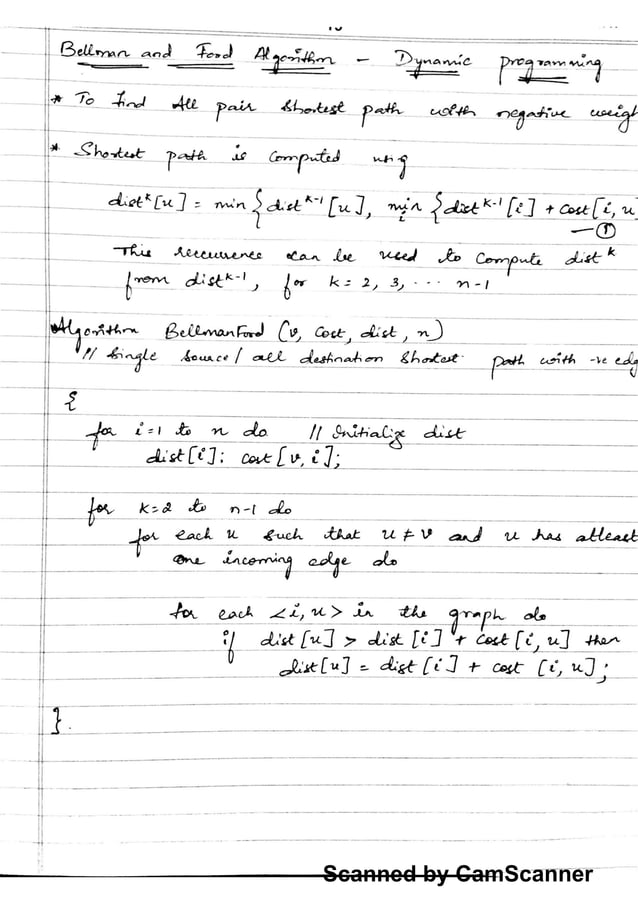 Bellman and Ford Algorithm - Dynamic programming
* To find All pair shortest path with negative weigh
* Shortest path is computed using
dist^k[u] = min { dist^k-1[u], min_i { dist^k-1[i] + cost[i, u
— ①
This recurrence can be used to compute dist^k
from dist^k-1, for k = 2, 3, ... n-1
Algorithm BellmanFord (v, cost, dist, n)
// Single source / all destination shortest path with -ve edg
{
for i=1 to n do // Initialize dist
dist[i]: cost[v, i];
for k=2 to n-1 do
for each u such that u ≠ v and u has atleast
one incoming edge do
for each <i, u> in the graph do
if dist[u] > dist[i] + cost[i, u] then
dist[u] = dist[i] + cost [i, u];
}.
Scanned by CamScanner